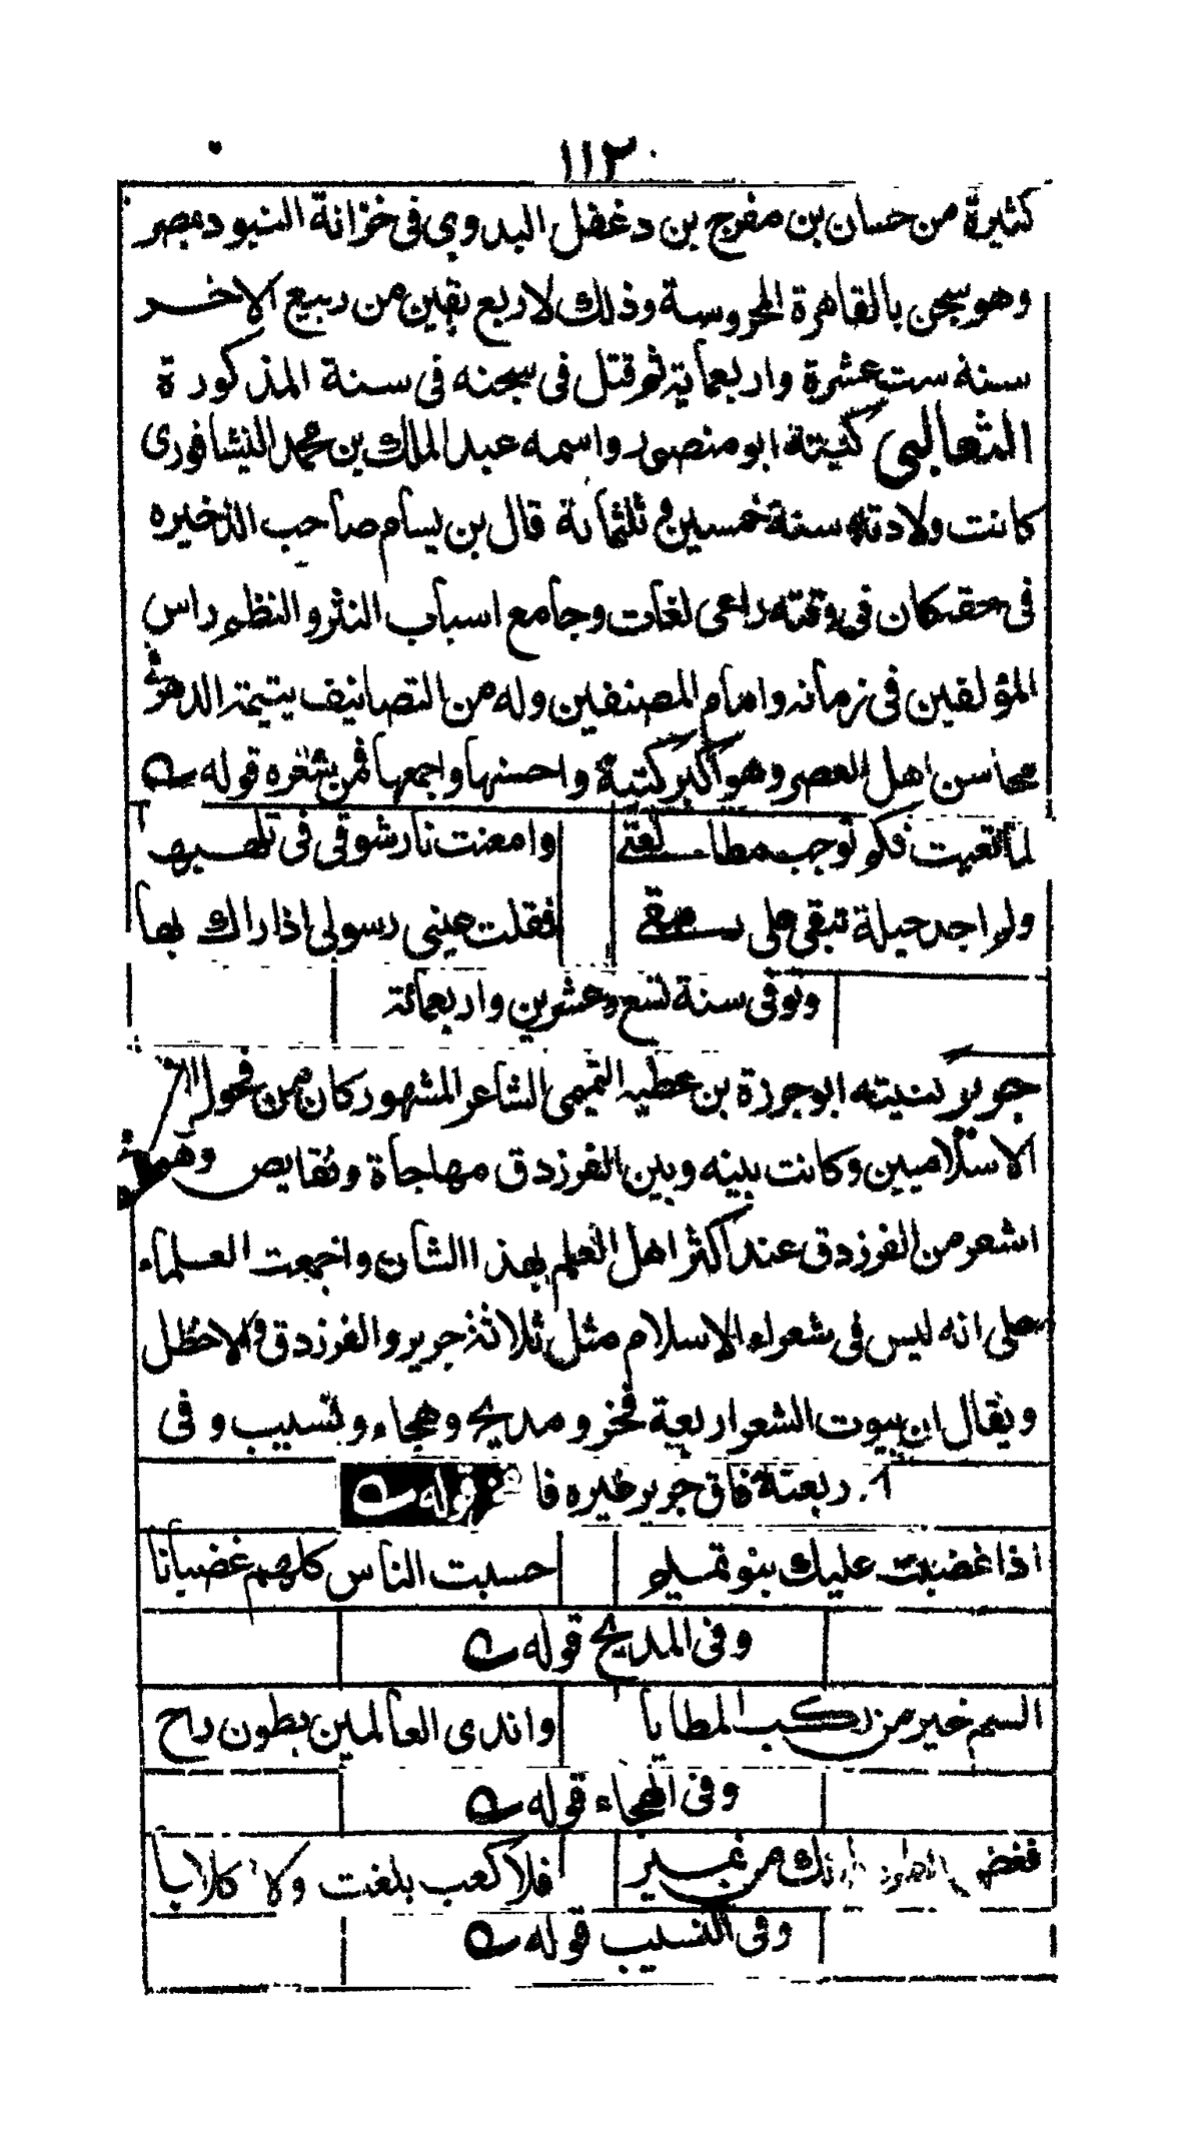 ١١٢
كثيرة من حسان بن مفرج بن دغفل البدوي فى خزانة البنود بمصر
وهو سجن بالقاهرة المحروسة وذلك لاربع بقين من ربيع الاخر
سنة ست عشرة واربعماية ثم قتل فى سجنه فى سنة المذكورة
الثعالبى كنيته ابو منصور واسمه عبد الملك بن محمد النيشافورى
كانت ولادته سنة خمسين و ثلثمائة قال بن بسام صاحب الذخيره
فى حقه كان فى وقته راعى لغات وجامع اسباب النثر والنظم راس
المؤلفين فى زمانه وامام المصنفين وله من التصانيف يتيمة الدهر فى
محاسن اهل العصر وهو اكبر كتبه واحسنها واجمعها فمن شعره قوله
لما بعثت فلم توجب مطالعتى وامعنت نار شوقى فى تلهبها
ولم اجد حيلة تبقى على رمقى فقلت عينى رسولى اذا راك بها
وتوفى سنة تسع وعشرين واربعمائة
جرير كنيته ابو حرزة بن عطيه التميمى الشاعر المشهور كان من فحول
الاسلاميين وكانت بينه وبين الفرزدق مهاجاة ونقايص وهو
اشعر من الفرزدق عند اكثر اهل العلم بهذا الشان واجمعت العلماء
على انه ليس فى شعراء الاسلام مثل ثلاثة جرير والفرزدق والاخطل
ويقال ان بيوت الشعر اربعة فخر و مديح وهجاء ونسيب و فى
الاربعة فاق جرير غيره فالفخر قوله
اذا غضبت عليك بنو تميم حسبت الناس كلهم غضبانا
وفى المديح قوله
الستم خير من ركب المطايا واندى العالمين بطون راح
وفى الهجاء قوله
فغض الطرف انك من نمير فلا كعب بلغت ولا كلابا
وفى النسيب قوله